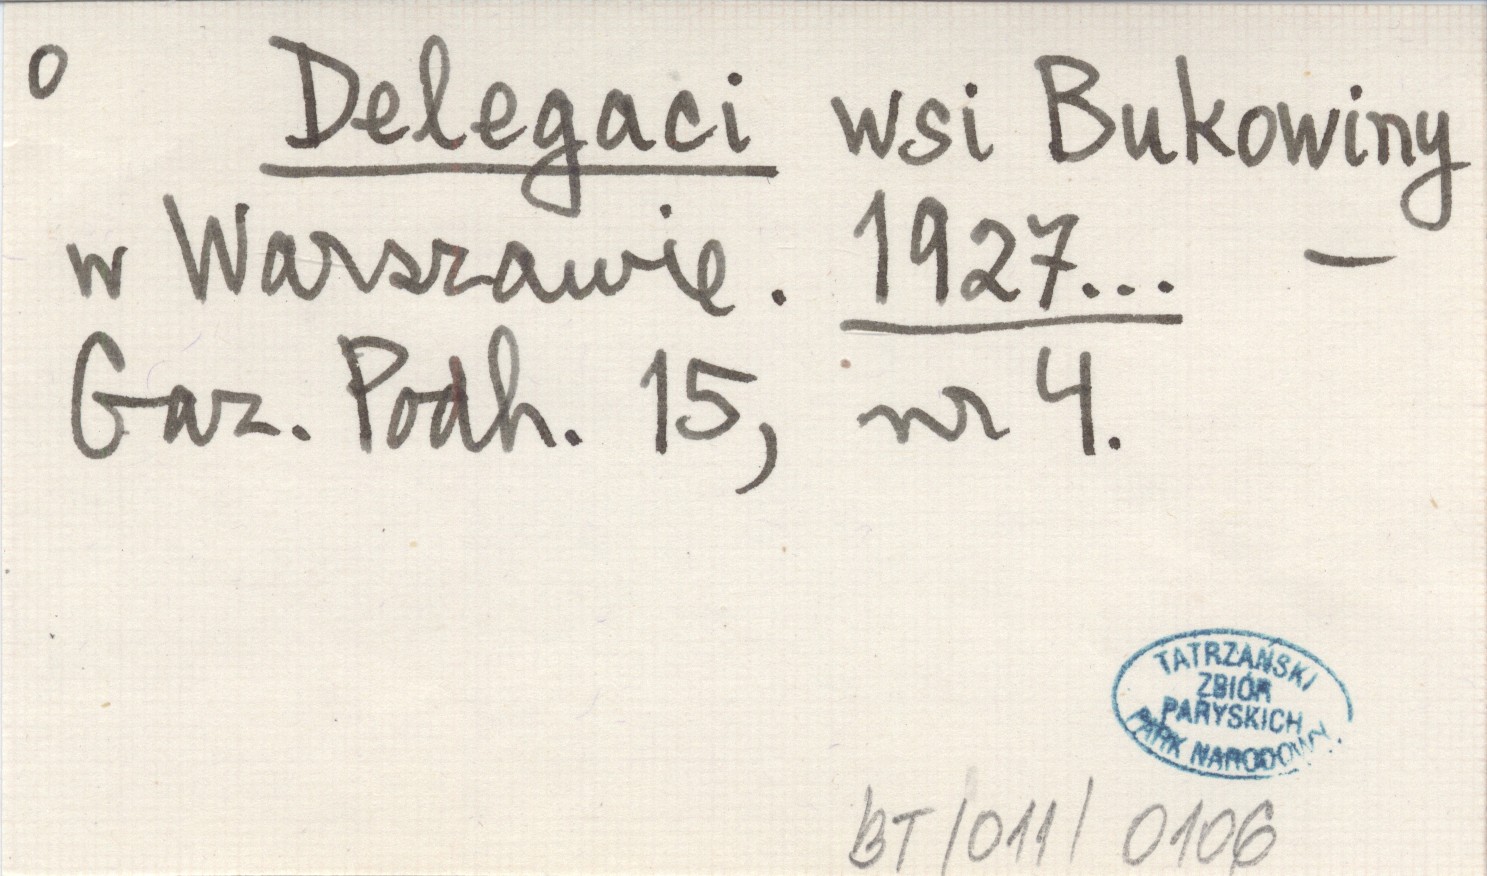 o Delegaci wsi Bukowiny
w Warszawie. 1927... —
Gaz. Podh. 15, nr 4.
TATRZAŃSKI
ZBIÓR
PARYSKICH
PARK NARODOWY.
BT/011/0106